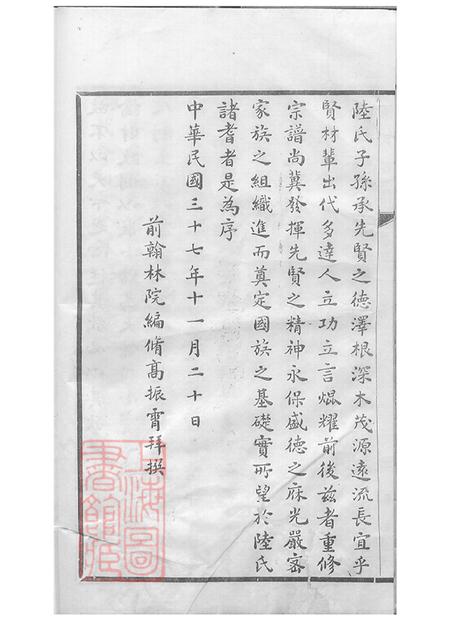 陸氏子孫承先賢之德澤根深木茂源遠流長宜乎
賢材輩出代多達人立功立言焜耀前後茲者重修
宗譜尚冀發揮先賢之精神永保盛德之庥光嚴密
家族之組織進而奠定國族之基礎實所望於陸氏
諸耆者是為序
中華民國三十七年十一月二十日
前翰林院編脩高振霄拜撰
上海圖
書館藏